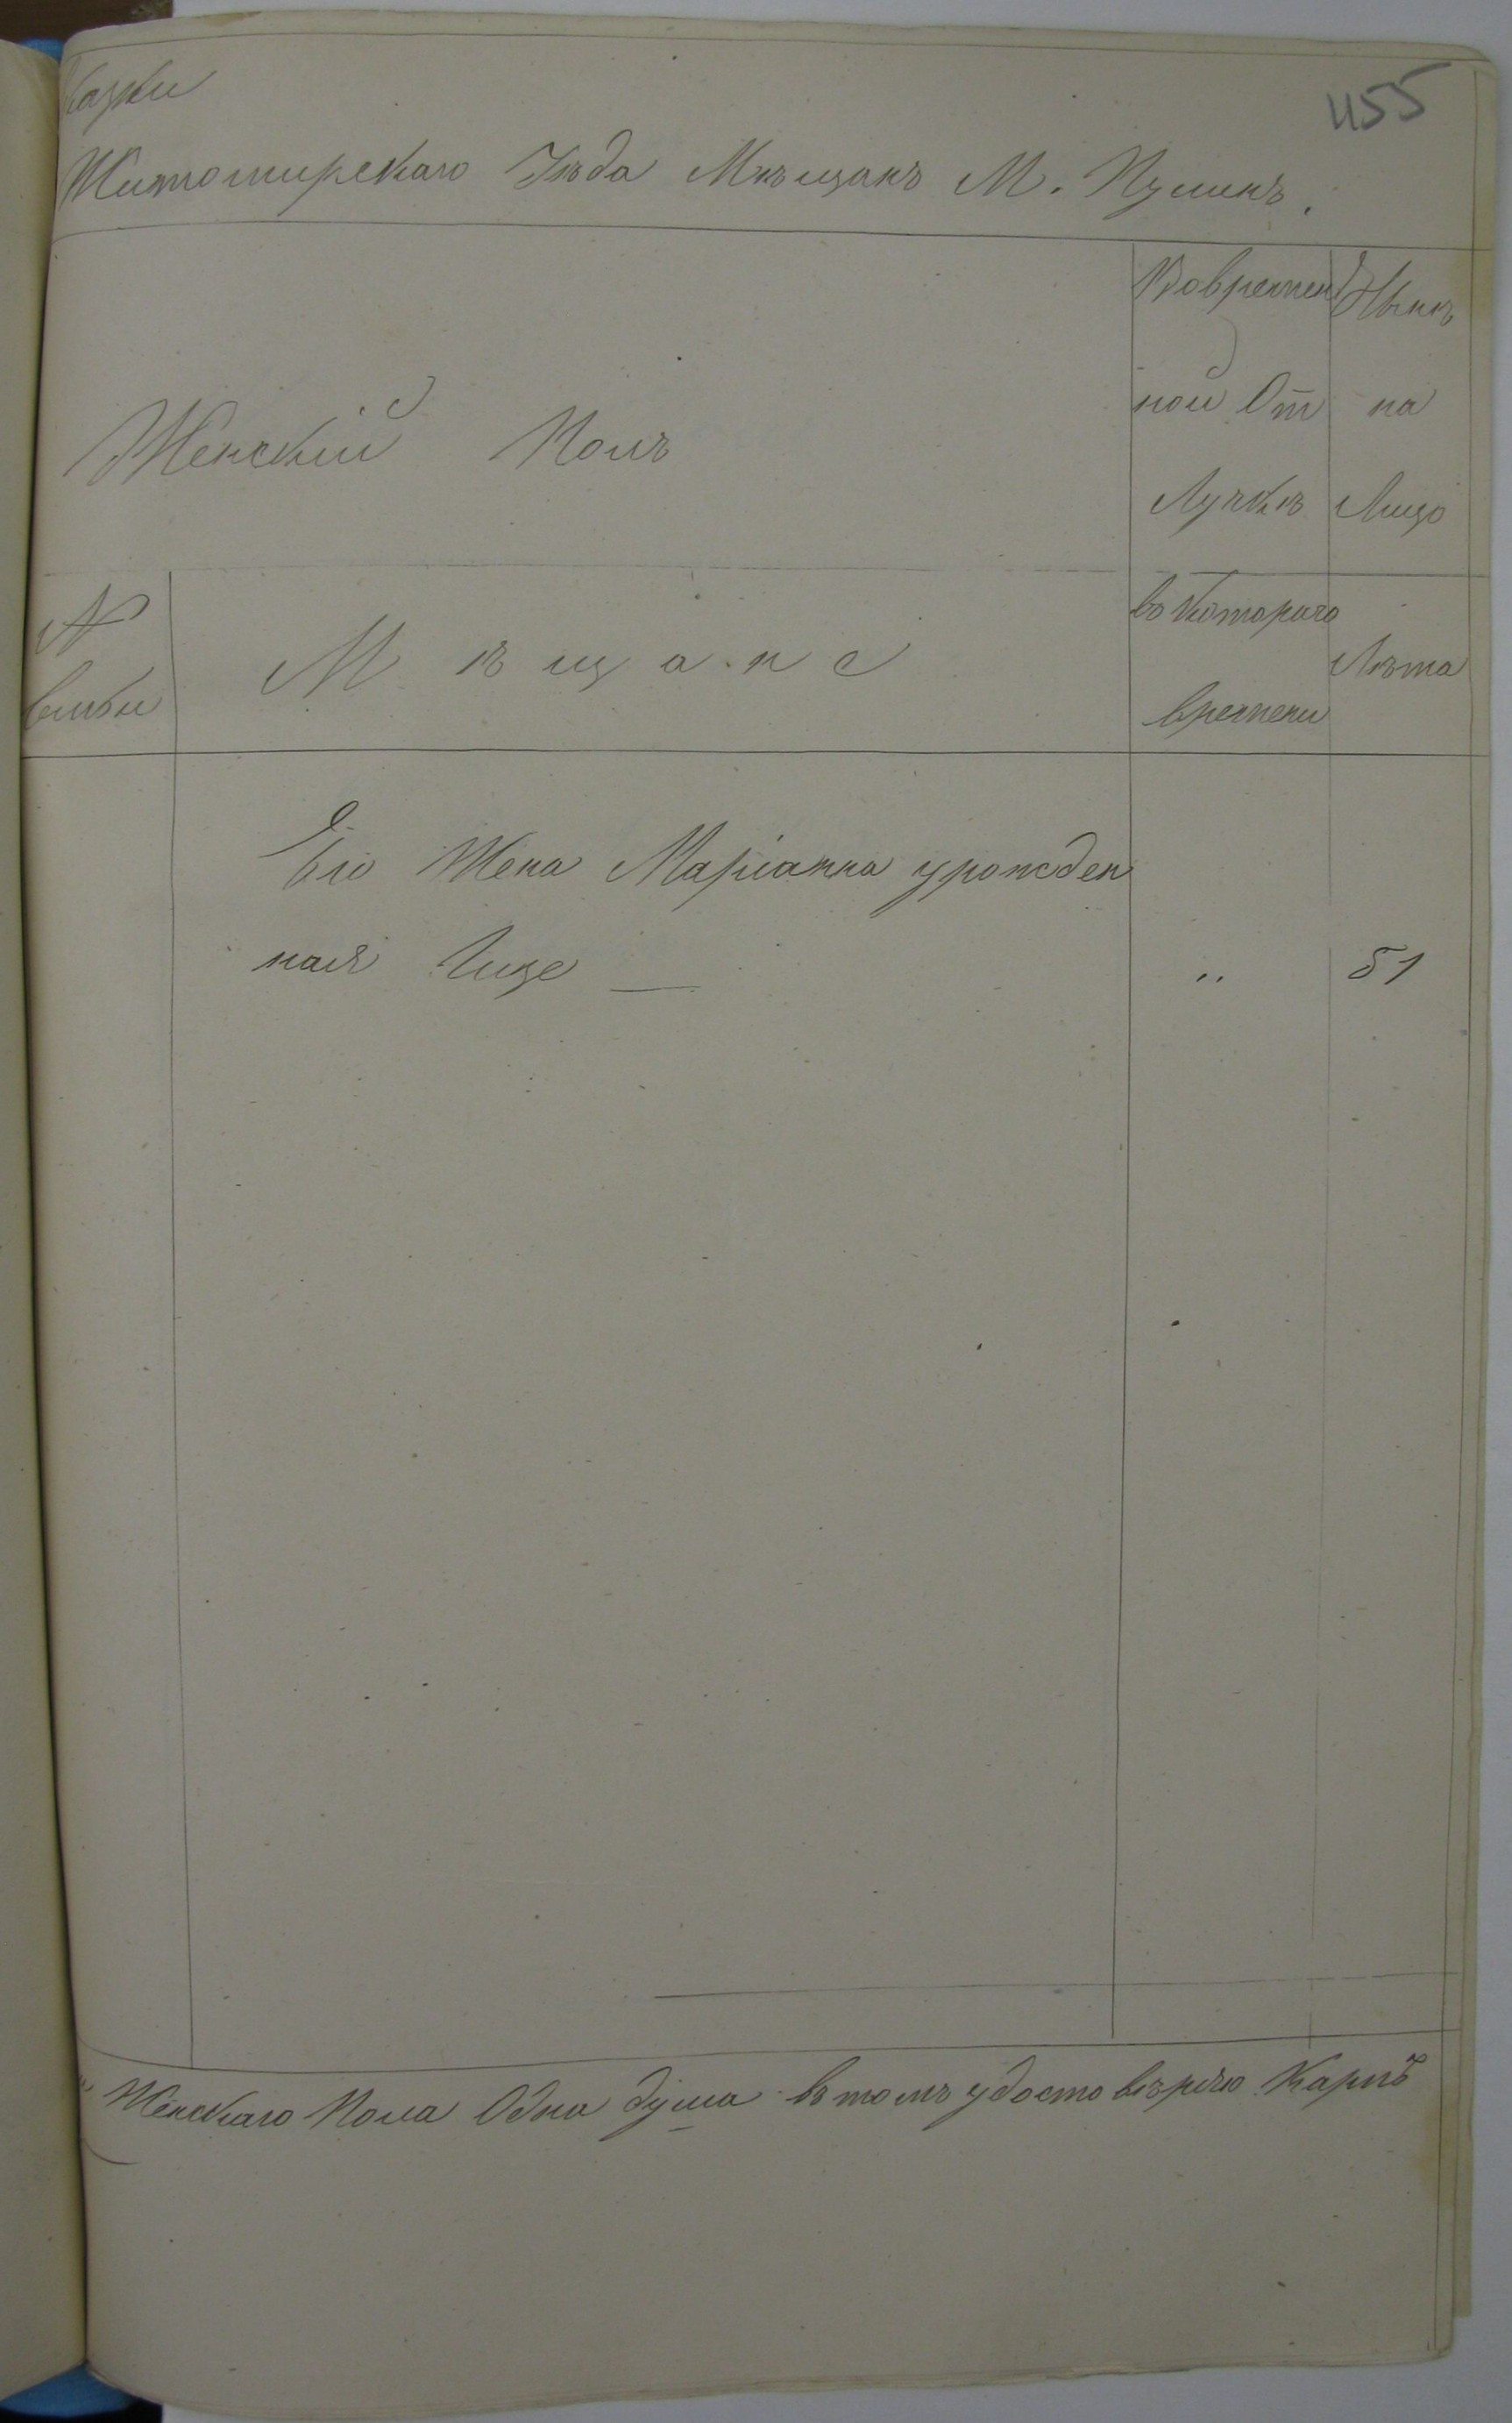 455
казки
Житомирскаго Уѣзда Мѣщанъ М. Пулинъ.
Женскій Полъ
Во времен
ной От
Лучкѣ
Нынѣ
на
Лицо
№
Мѣщане
въ котораго
времени
Лѣта
Его Жена Маріанна урожден
ная „ 51
Женскаго Пола Одна душа въ томъ удостовѣряю Карпъ